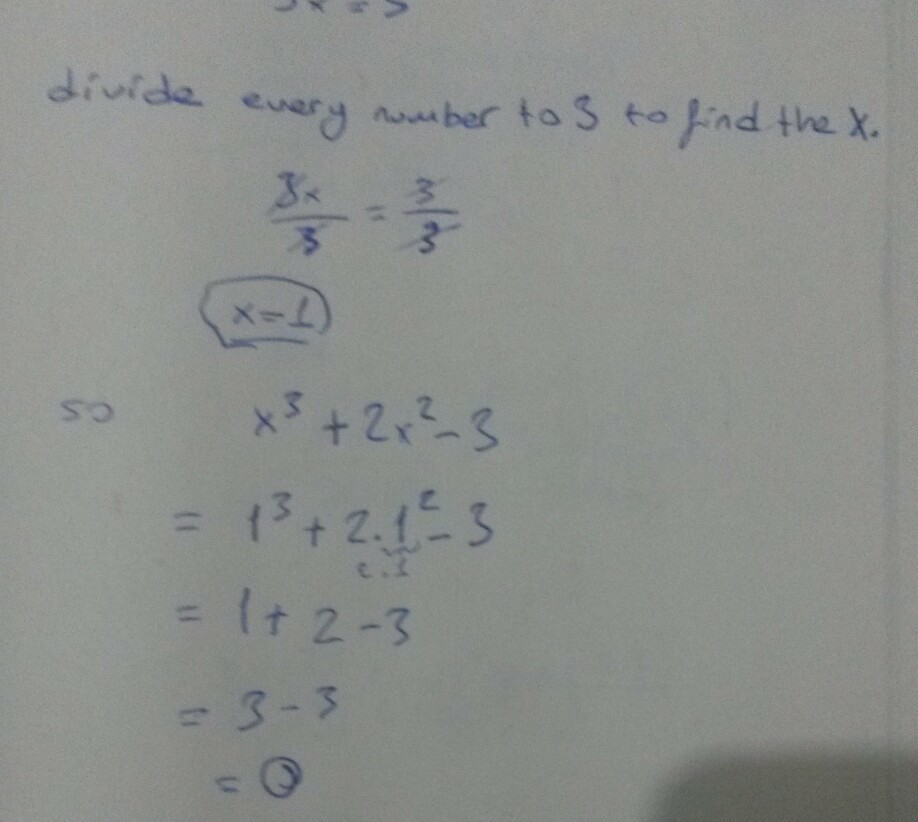 3x = 3
divide every number to 3 to find the x.
3x/3 = 3/3
x=1
so x³ + 2x² - 3
= 1³ + 2.1² - 3
2.1
= 1 + 2 - 3
= 3 - 3
= 0